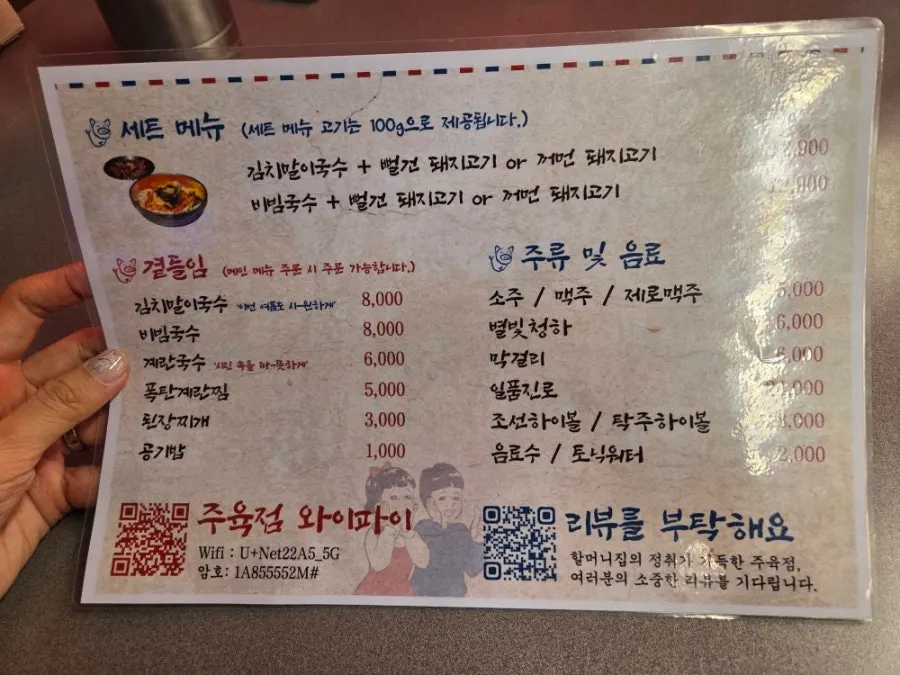 세트 메뉴 (세트 메뉴 고기는 100g으로 제공됩니다.)
김치말이국수 + 뻘건 돼지고기 or 꺼먼 돼지고기
비빔국수 + 뻘건 돼지고기 or 꺼먼 돼지고기
곁들임 (메인 메뉴 주문 시 주문 가능합니다.)
김치말이국수 '이번 여름도 시-원하게' 8,000
비빔국수 8,000
계란국수 '시린 속을 따-뜻하게' 6,000
폭탄계란찜 5,000
된장찌개 3,000
공기밥 1,000
주류 및 음료
소주 / 맥주 / 제로맥주 5,000
별빛청하 6,000
막걸리 6,000
일품진로
조선하이볼 / 탁주하이볼 8,000
음료수 / 토닉워터 2,000
주육점 와이파이
Wifi : U+Net22A5_5G
암호: 1A855552M#
리뷰를 부탁해요
할머니집의 정취가 가득한 주육점,
여러분의 소중한 리뷰를 기다립니다.